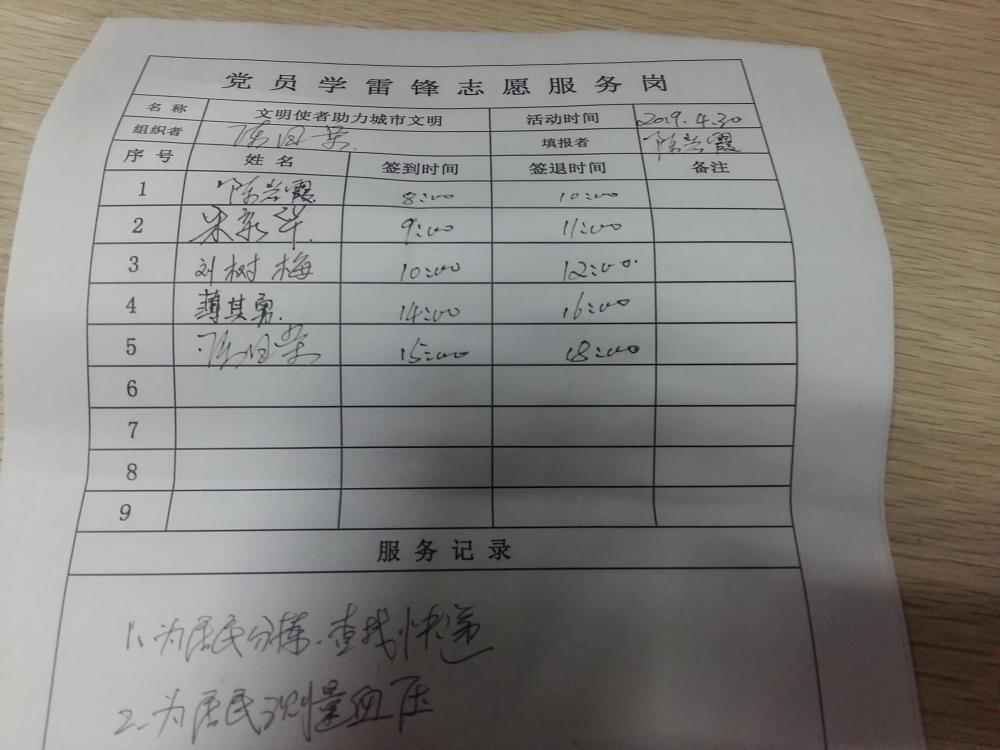 党员学雷锋志愿服务岗
名称 文明使者助力城市文明 活动时间 2019.4.30
组织者 填报者 陈岩霞
序号 姓名 签到时间 签退时间 备注
1 陈岩霞 8:00 10:00
2 9:00 11:00
3 刘树梅 10:00 12:00
4 薄其勇 14:00 16:00
5 15:00 18:00
6
7
8
9
服务记录
1、为居民分拣、查找快递
2、为居民测量血压